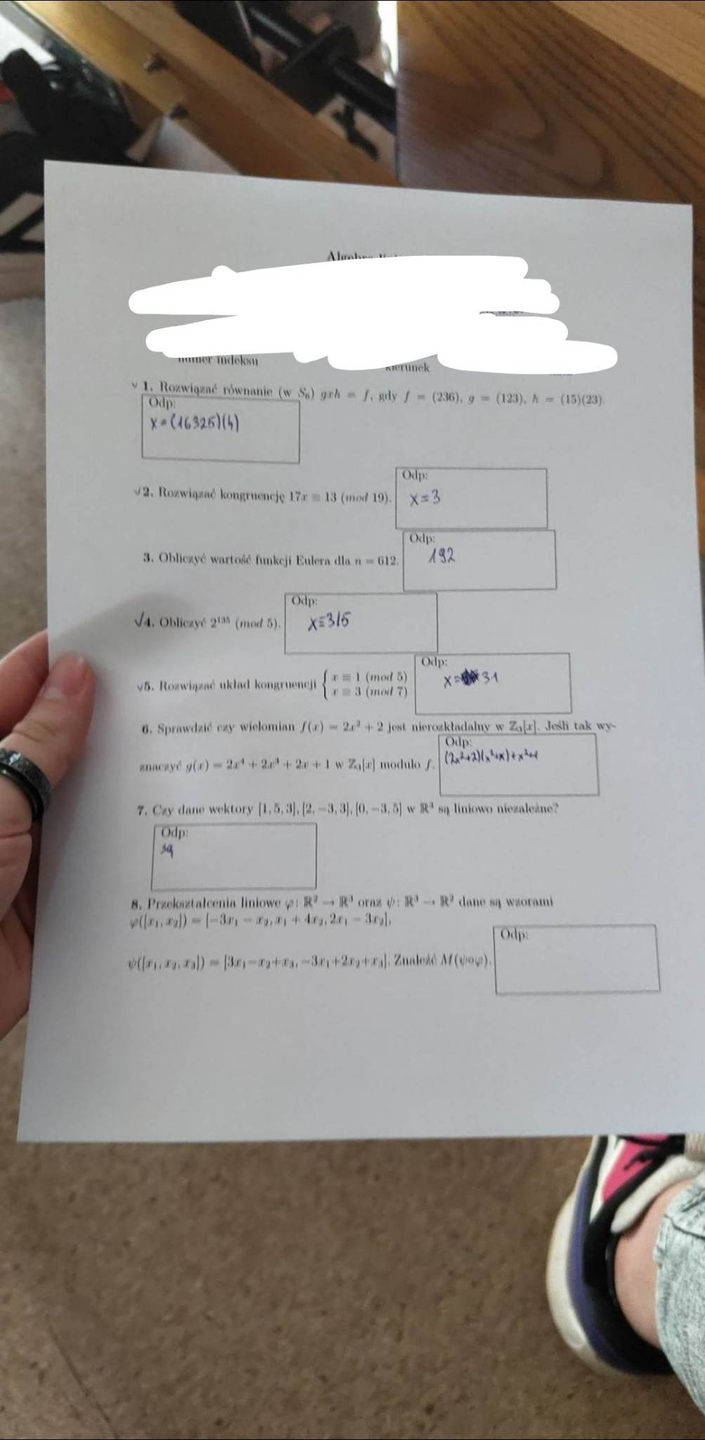 numer indeksu
kierunek
√ 1. Rozwiązać równanie (w S₆) gxh = f, gdy f = (236), g = (123), h = (15)(23).
Odp:
x=(16325)(4)
√2. Rozwiązać kongruencję 17x ≡ 13 (mod 19).
Odp:
x=3
3. Obliczyć wartość funkcji Eulera dla n = 612.
Odp:
192
√4. Obliczyć 2¹³⁵ (mod 5).
Odp:
x≡3/5
√5. Rozwiązać układ kongruencji { x ≡ 1 (mod 5)
x ≡ 3 (mod 7)
Odp:
x= 31
6. Sprawdzić czy wielomian f(x) = 2x² + 2 jest nierozkładalny w ℤ₃[x]. Jeśli tak wy-
znaczyć g(x) = 2x⁴ + 2x³ + 2x + 1 w ℤ₃[x] modulo f.
Odp:
(2x²+2)(x²+x)+x²+1
7. Czy dane wektory [1, 5, 3], [2, −3, 3], [0, −3, 5] w ℝ³ są liniowo niezależne?
Odp:
są
8. Przekształcenia liniowe φ: ℝ² → ℝ³ oraz ψ: ℝ³ → ℝ² dane są wzorami
φ([x₁, x₂]) = [−3x₁ − x₂, x₁ + 4x₂, 2x₁ − 3x₂],
ψ([x₁, x₂, x₃]) = [3x₁−x₂+x₃, −3x₁+2x₂+x₃]. Znaleźć M(ψ∘φ).
Odp: